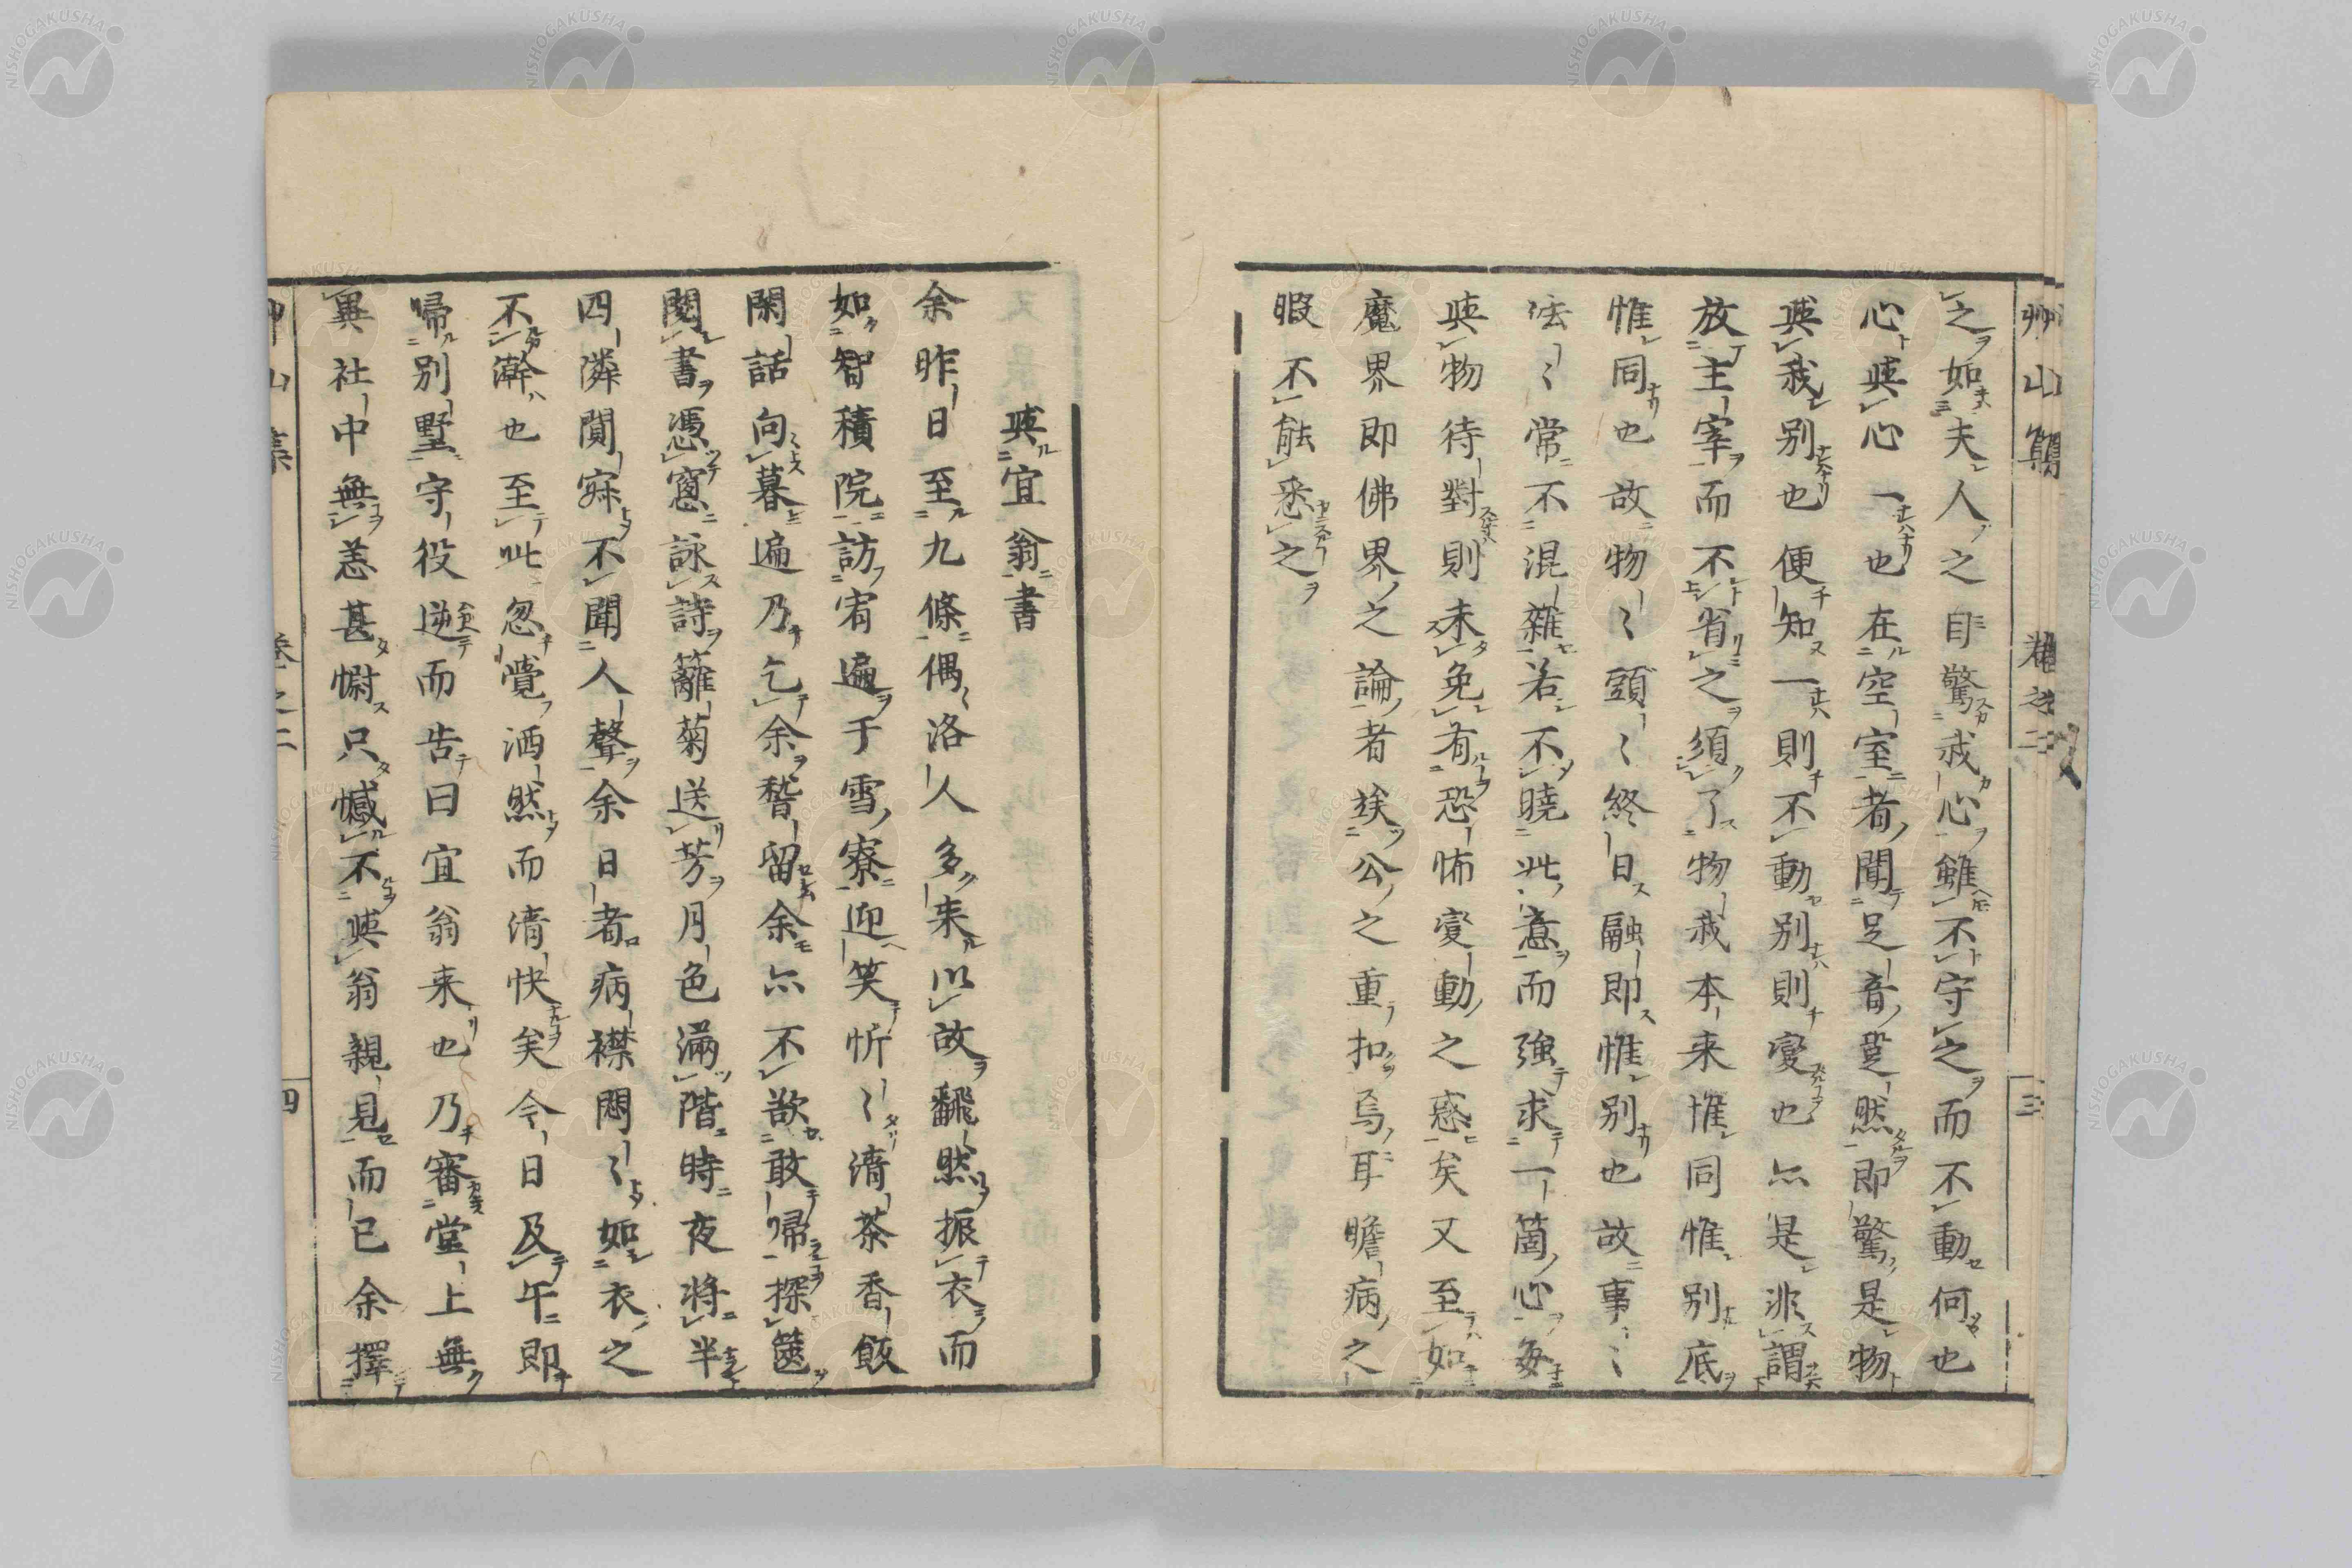 之如夫人之自驚戒心雖不守之而不動何也
心與心一也在空室者聞足音跫然即驚是物
與我別也便知一則不動別則變也亦是非謂
放主宰而不省之須了物我本来惟同惟別底
惟同也故物〻頭〻終日融即惟別也故事〻
法〻常不混雜若不曉此意而強求一箇心每
與物待對則未免有恐怖變動之惑矣又至如
魔界即佛界之論者俟公之重扣烏耳瞻病之
暇不能悉之
與宜翁書
余昨日至九條偶洛人多来以故飜然振衣而
如智積院訪宥遍于雪寮迎笑忻〻清茶香飯
閑話向暮遍乃乞余暫留余亦不欲敢歸探篋
閱書憑窓詠詩籬菊送芳月色滿階時夜將半
四隣閴寂不聞人聲余日者病襟悶〻如衣之
不澣也至此忽覺洒然而清快矣今日及午即
歸別墅守役逆而告曰宜翁来也乃審堂上無
異社中無恙甚慰只憾不與翁親見而已余擇
艸山集
巻之二
三
四
NISHOGAKUSHA